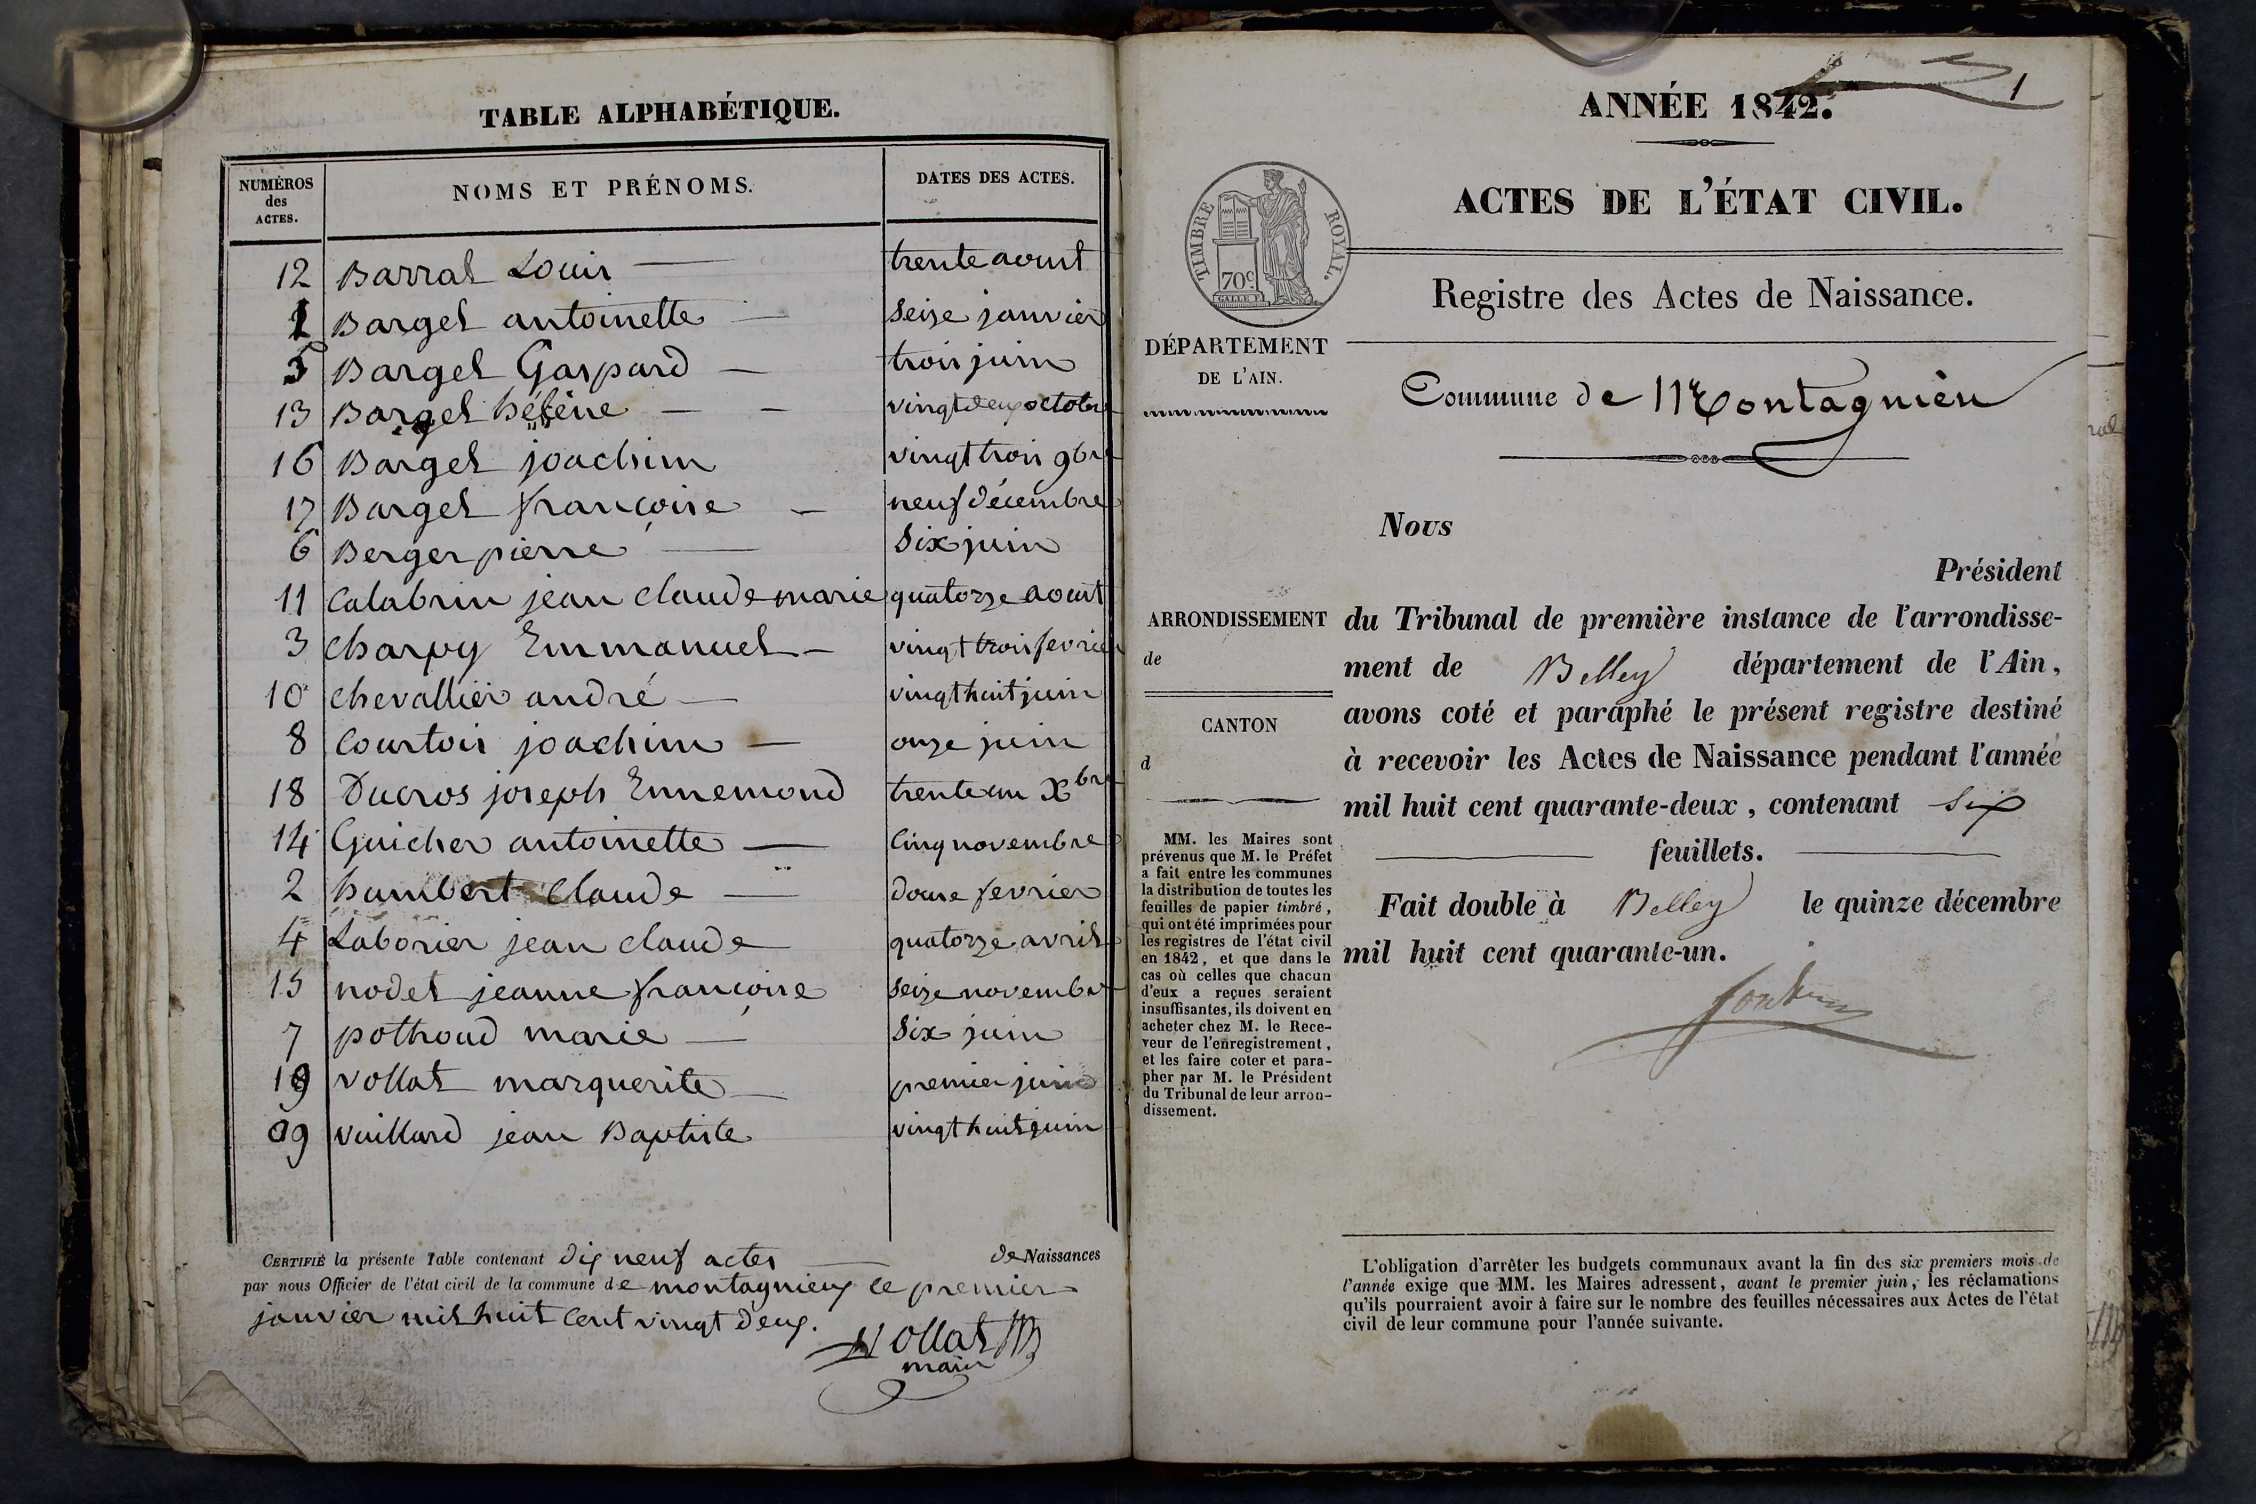 TABLE ALPHABÉTIQUE.
NUMÉROS des ACTES. NOMS ET PRÉNOMS. DATES DES ACTES.
12 Barral Louis trente aoust
1 Barget antoinette seize janvier
5 Barget Gaspard trois juin
13 Barget héléne vingt deux octobre
16 Barget joachim vingt trois 9bre
17 Barget françoise neuf décembre
6 Berger pierre six juin
11 Calabrin jean claude marie quatorze aoust
3 Charpy Emmanuel vingt trois fevrier
10 chevallier andré vingt huit juin
8 Courtois joachim onze juin
18 Ducros joseph Ennemond trente un Xbre
14 Guicher antoinette Cinq novembre
2 humbert Claude douse fevrier
4 Laborier jean claude quatorze avril
15 nodet jeanne françoise Seize novembre
7 pothoud marie Six juin
19 vollat marguerite premier juin
9 vuillard jean Baptiste vingt huit juin
CERTIFIÉ la présente Table contenant dix neuf actes de Naissances
par nous Officier de l'état civil de la commune de montagnieu ce premier
janvier mil huit Cent vingt deux.
Vollat
maire
1
ANNÉE 1842.
ACTES DE L'ÉTAT CIVIL.
TIMBRE ROYAL.
70c
Registre des Actes de Naissance.
DÉPARTEMENT
DE L'AIN.
Commune de Montagnieu
Nous
Président
ARRONDISSEMENT
de
CANTON
d
du Tribunal de première instance de l'arrondisse-
ment de Belley département de l'Ain,
avons coté et paraphé le présent registre destiné
à recevoir les Actes de Naissance pendant l'année
mil huit cent quarante-deux, contenant six
feuillets.
Fait double à Belley le quinze décembre
mil huit cent quarante-un.
MM. les Maires sont
prévenus que M. le Préfet
a fait entre les communes
la distribution de toutes les
feuilles de papier timbré,
qui ont été imprimées pour
les registres de l'état civil
en 1842, et que dans le
cas où celles que chacun
d'eux a reçues seraient
insuffisantes, ils doivent en
acheter chez M. le Rece-
veur de l'enregistrement,
et les faire coter et para-
pher par M. le Président
du Tribunal de leur arron-
dissement.
L'obligation d'arrêter les budgets communaux avant la fin des six premiers mois de
l'année exige que MM. les Maires adressent, avant le premier juin, les réclamations
qu'ils pourraient avoir à faire sur le nombre des feuilles nécessaires aux Actes de l'état
civil de leur commune pour l'année suivante.